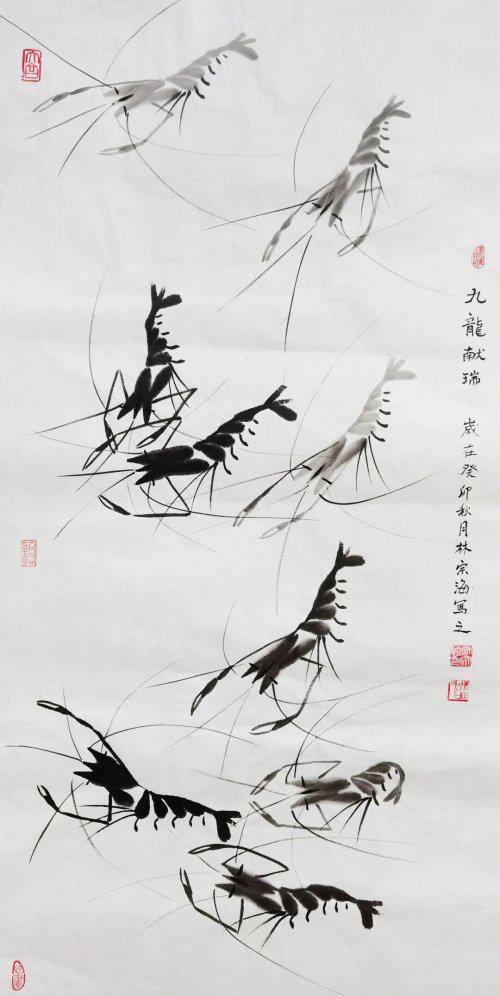 九龍献瑞
歲在癸卯秋月林宗海寫之